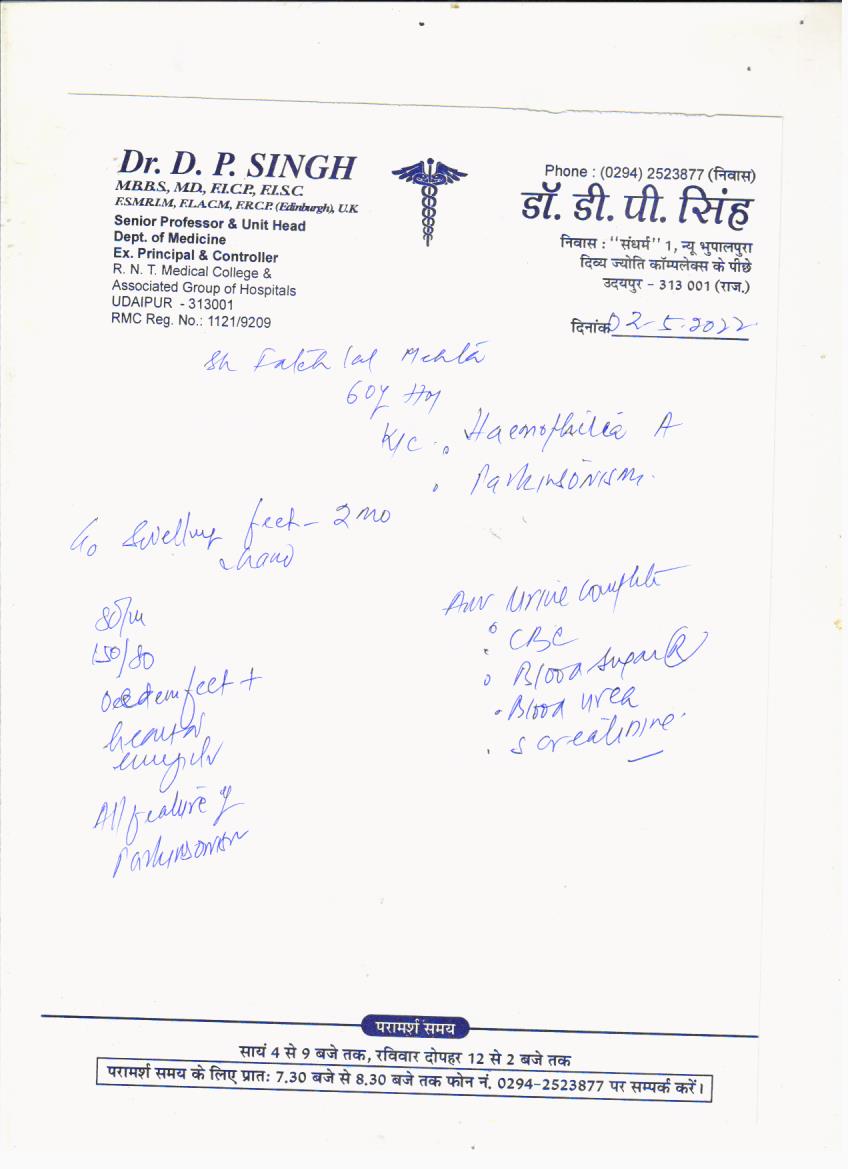 Dr. D. P. SINGH
M.B.B.S., M.D., F.I.C.P., F.I.S.C.
F.S.M.R.I.M, F.I.A.C.M, F.R.C.P. (Edinburgh), U.K
Senior Professor & Unit Head
Dept. of Medicine
Ex. Principal & Controller
R. N. T. Medical College &
Associated Group of Hospitals
UDAIPUR - 313001
RMC Reg. No.: 1121/9209
Phone : (0294) 2523877 (निवास)
डॉ. डी. पी. सिंह
निवास : "संधर्म" 1, न्यू भुपालपुरा
दिव्य ज्योति कॉम्पलेक्स के पीछे
उदयपुर - 313 001 (राज.)
दिनांक 02-5-2022
Sh Fateh lal Mehta
60y
K/c . Haemophilia A
. Parkinsonism.
C/o Swelling feet - 2 mo
hand
80/m
150/80
Oedem feet +
All feature of
Parkinsonism
Adv Urine Complete
CBC
Blood Sugar (R)
Blood Urea
S Creatinine
परामर्श समय
सायं 4 से 9 बजे तक, रविवार दोपहर 12 से 2 बजे तक
परामर्श समय के लिए प्रातः 7.30 बजे से 8.30 बजे तक फोन नं. 0294-2523877 पर सम्पर्क करें।